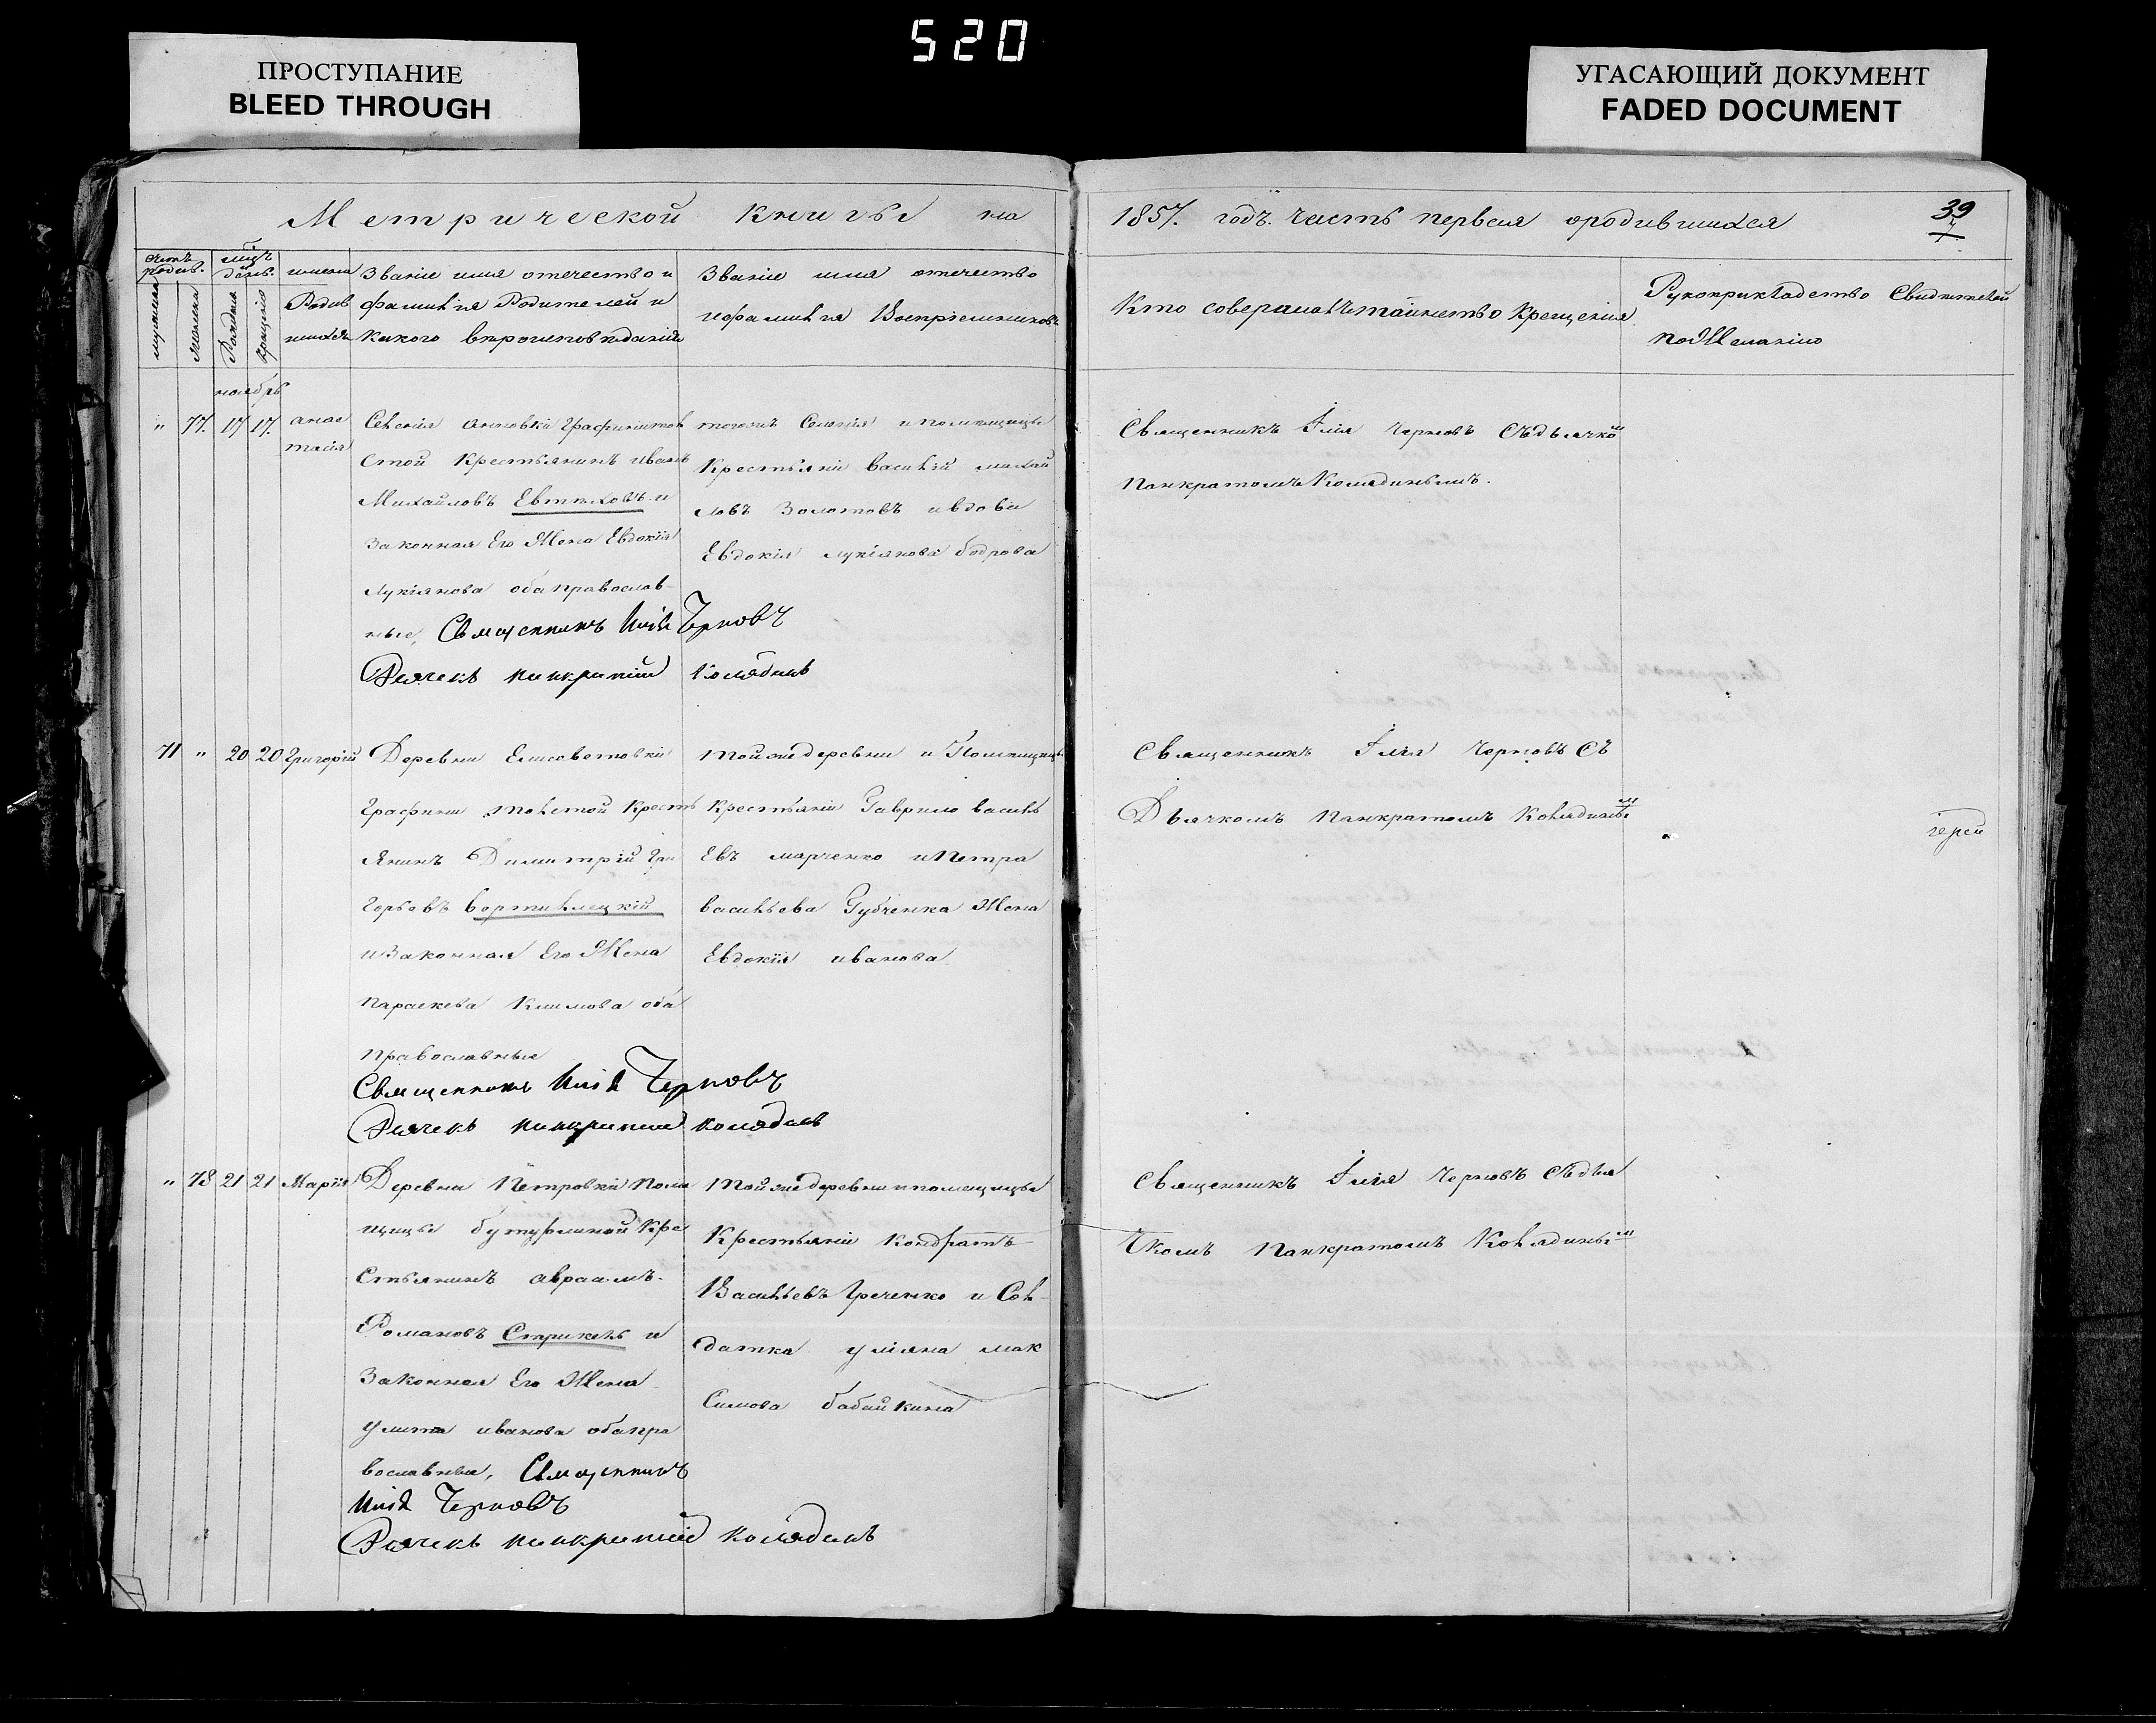 520
ПРОСТУПАНИЕ
BLEED THROUGH
УГАСАЮЩИЙ ДОКУМЕНТ
FADED DOCUMENT
Метрической книгы на
1857. годъ. часть первая ородившихся
39
Счетъ родив.
мужеска
женска
день.
Рожденія
крещенія
имена
Родив
шихся
Званіе имя отечество и
фамилія Родителей и
какого вѣроисповѣданія
Званіе имя отечество
ифамилія Воспріемниковъ
Кто совершалъ таинство крещенія
Рукоприкладство Свидѣтелей
поЖеланію
ноябрь
" 77. 17 17.
анас
тасія
Селенія Анновки Графинитол
стой Крестьянинъ Иванъ
Михайловъ Евтиховъ и
Законная Его Жена Евдокія
Лукіянова оба православ-
ные, Священникъ Илія Черновъ
Дьячекъ панкратій Колядинъ
тогожъ Селенія и помѣщицы
Крестьяни василій михай
ловъ Золотовъ ивдова
Евдокія лукіянова бодрова
Священникъ Илія Черновъ Съдьячком
Панкратомъ Колядинымъ.
71 " 20 20 Григорій
Деревни Елисаветовки
Графини толстой Кресть
Янинъ Димитрій Гри
Горьевъ
иЗаконная Его Жена
Параскева Климова оба
Православные
Священникъ Илія Черновъ
Дьячекъ панкратій колядинъ
тойжедеревни и Помѣщицы
Крестьяни Гаврило василь
Евъ марченко иПетра
васильева Губченка Жена
Евдокія иванова
Священникъ Илія Черновъ Съ
Дьячкомъ Панкратомъ Колядиным
іерей
" 78 21 21 Марія
Деревни Петровки Поме
щицы бутурлиной Кре
Стьянинъ авраамъ.
Романовъ Стрикель и
Законная Его Жена
улита иванова обапра
вославные, Священникъ
Илія Черновъ
Дьячекъ панкратій Колядинъ
тойжедеревни ипомещицы
Крестьяни Кондратъ
Васильевъ Гречченко и Сол
датка уліяна мак
Симова бабайкина
Священникъ Илія Черновъ Съдья
Чкомъ Панкратомъ Колядиным